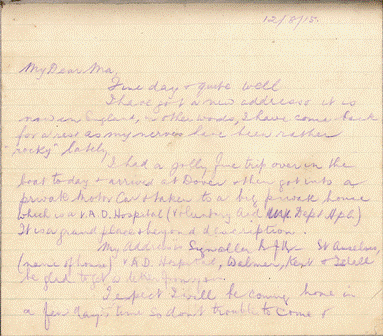 12/8/15.
My Dear Ma,
Fine day & quite well
I have got a new address & it is
now in England, in other words, I have come back
for a rest as my nerves have been rather
rocky" lately
I had a jolly fine trip over in the
boat today & arrived at Dover & then got into a
private Motor Car & taken to a big private house
which is a V.A.D. Hospital (Voluntary Aid Dept Hpl)
It is a grand place & beyond description.
My Address Signaller St Anselms,
(name of house) V.A.D. Hospital, Walmer, Kent & I shall
be glad to get a letter from you.
I expect I will be coming home in
a few days time so don't trouble to come &